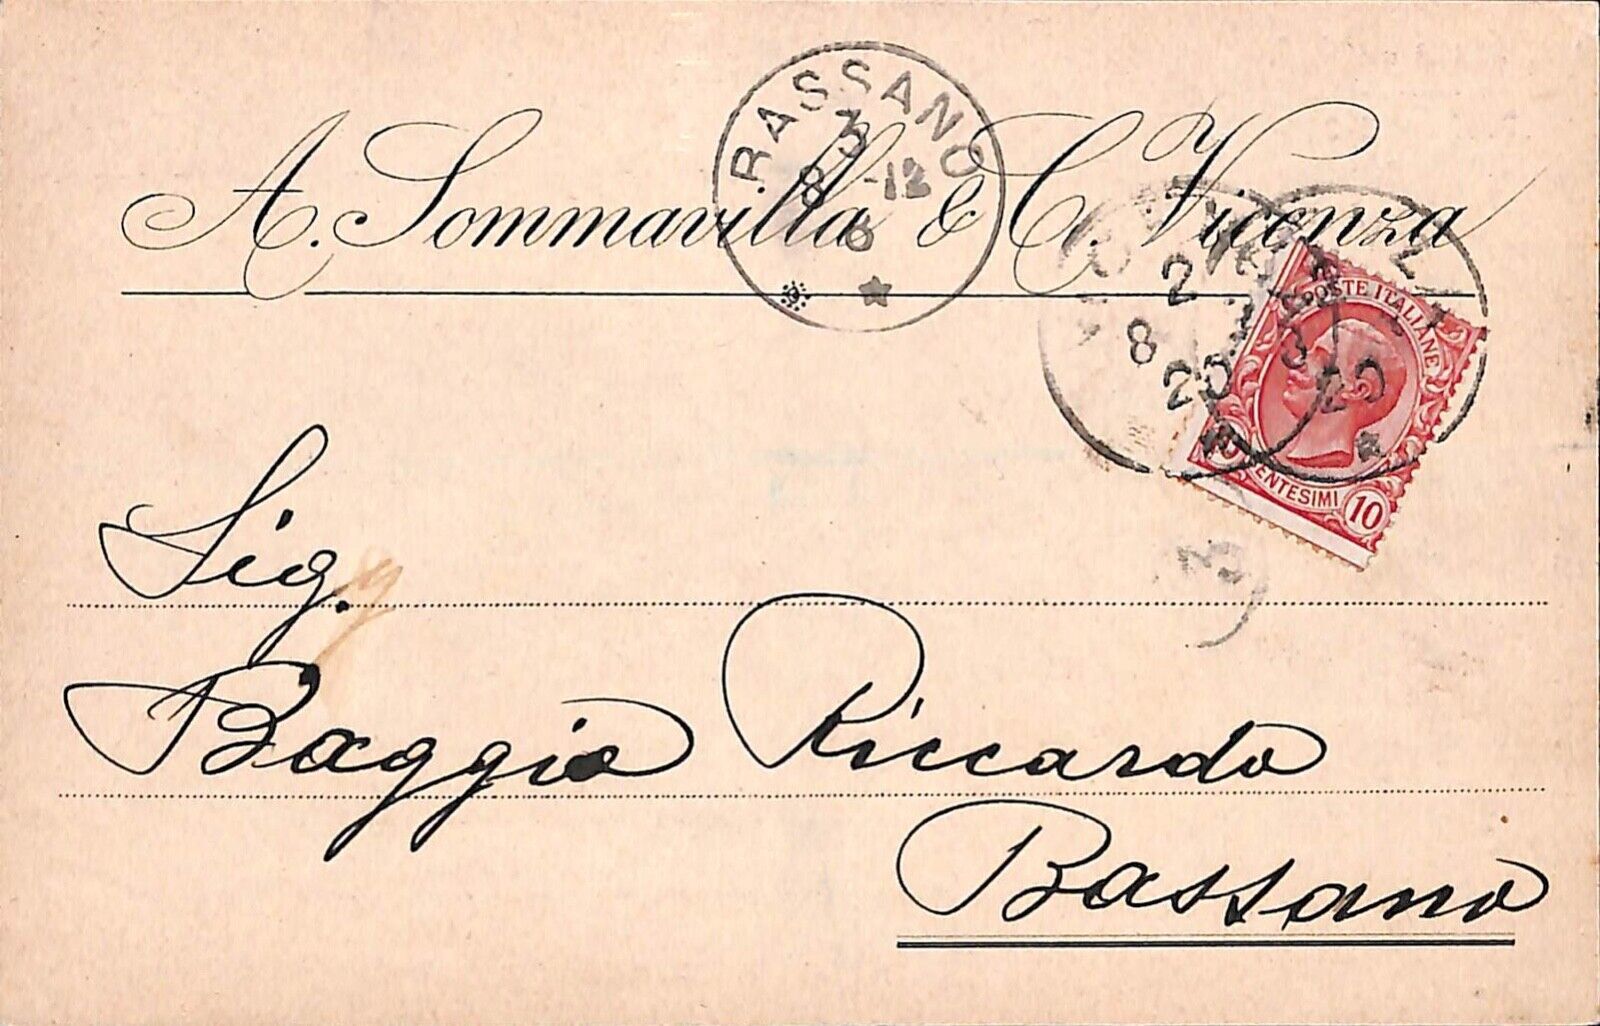 A. Sommavilla & C. Vicenza
BASSANO
3
8 -12
6
2
8
20
20
POSTE ITALIANE
CENTESIMI 10
Sig.
Baggio Riccardo
Bassano